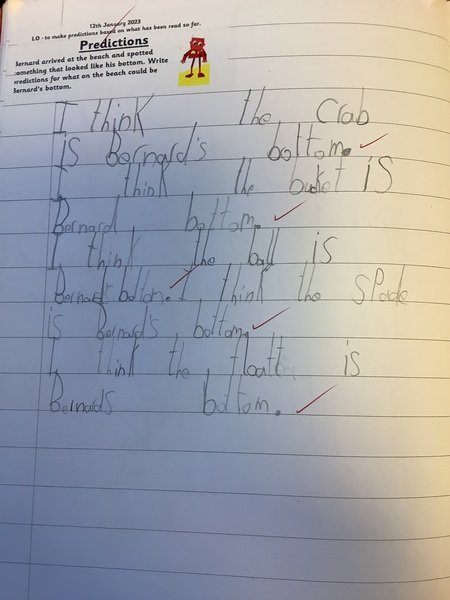 12th January 2023
LO - to make predictions based on what has been read so far.
Predictions
Bernard arrived at the beach and spotted
something that looked like his bottom. Write
predictions for what on the beach could be
Bernard's bottom.
I think the crab
is Bernard's bottom.
I think the bucket is
Bernard bottom.
I think the ball is
Bernard's bottom. I think the spade
is Bernard's bottom.
I think the floatt is
Bernards bottom.